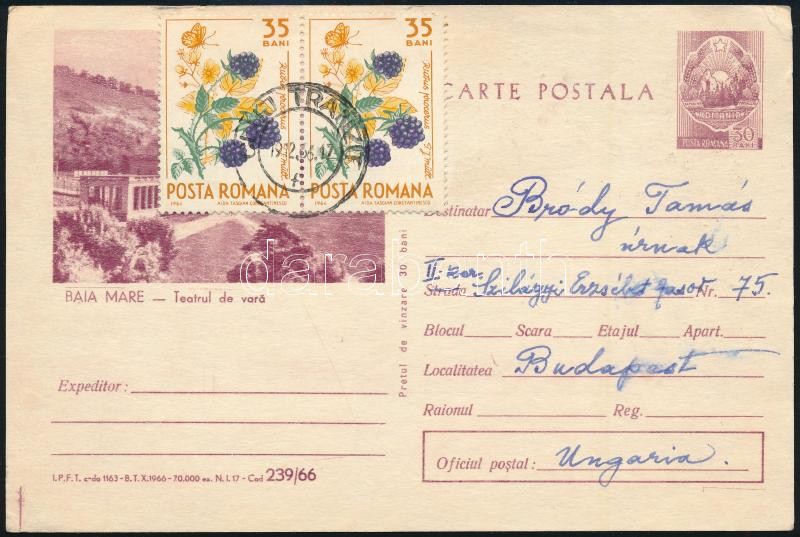 35 BANI
Rubus procerus P.J. müll.
POSTA ROMANA
1964 AIDA TASGIAN CONSTANTINESCU
35 BANI
Rubus procerus P.J. müll.
POSTA ROMANA
1964 AIDA TASGIAN CONSTANTINESCU
CARTE POSTALA
ROMANIA
POSTA ROMANA 30 BANI
BAIA MARE — Teatrul de vară
Expeditor:
I.P.F.T. c-da 1163 - B.T.X.1966 - 70.000 ex. N.I. 17 - Cod 239/66
Prețul de vînzare 30 bani
Destinatar Bródy Tamás
úrnak
II. ker.
Strada Szilágyi Erzsébet fasor Nr. 75.
Blocul Scara Etajul Apart.
Localitatea Budapest
Raionul Reg.
Oficiul poștal: Ungaria.
darabanth